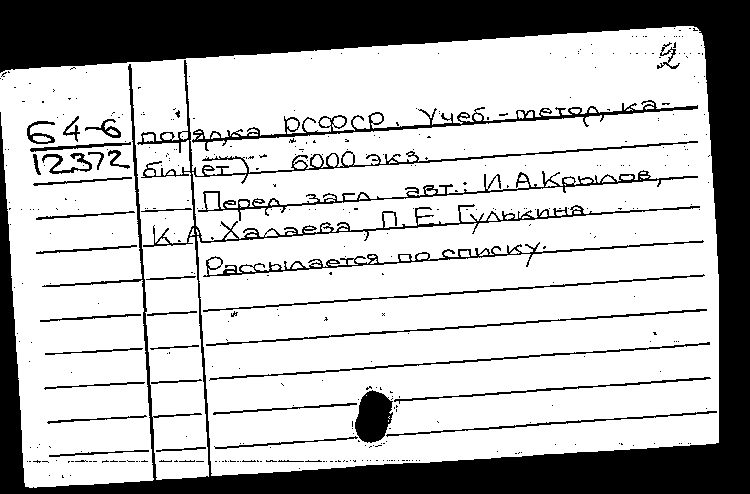 2
64-6
12372
порядка РСФСР. Учеб.-метод. ка-
бинет). 6000 экз.
Перед загл. авт.: И.А.Крылов,
К.А.Халаева, П.Е. Гулькина.
Рассылается по списку.